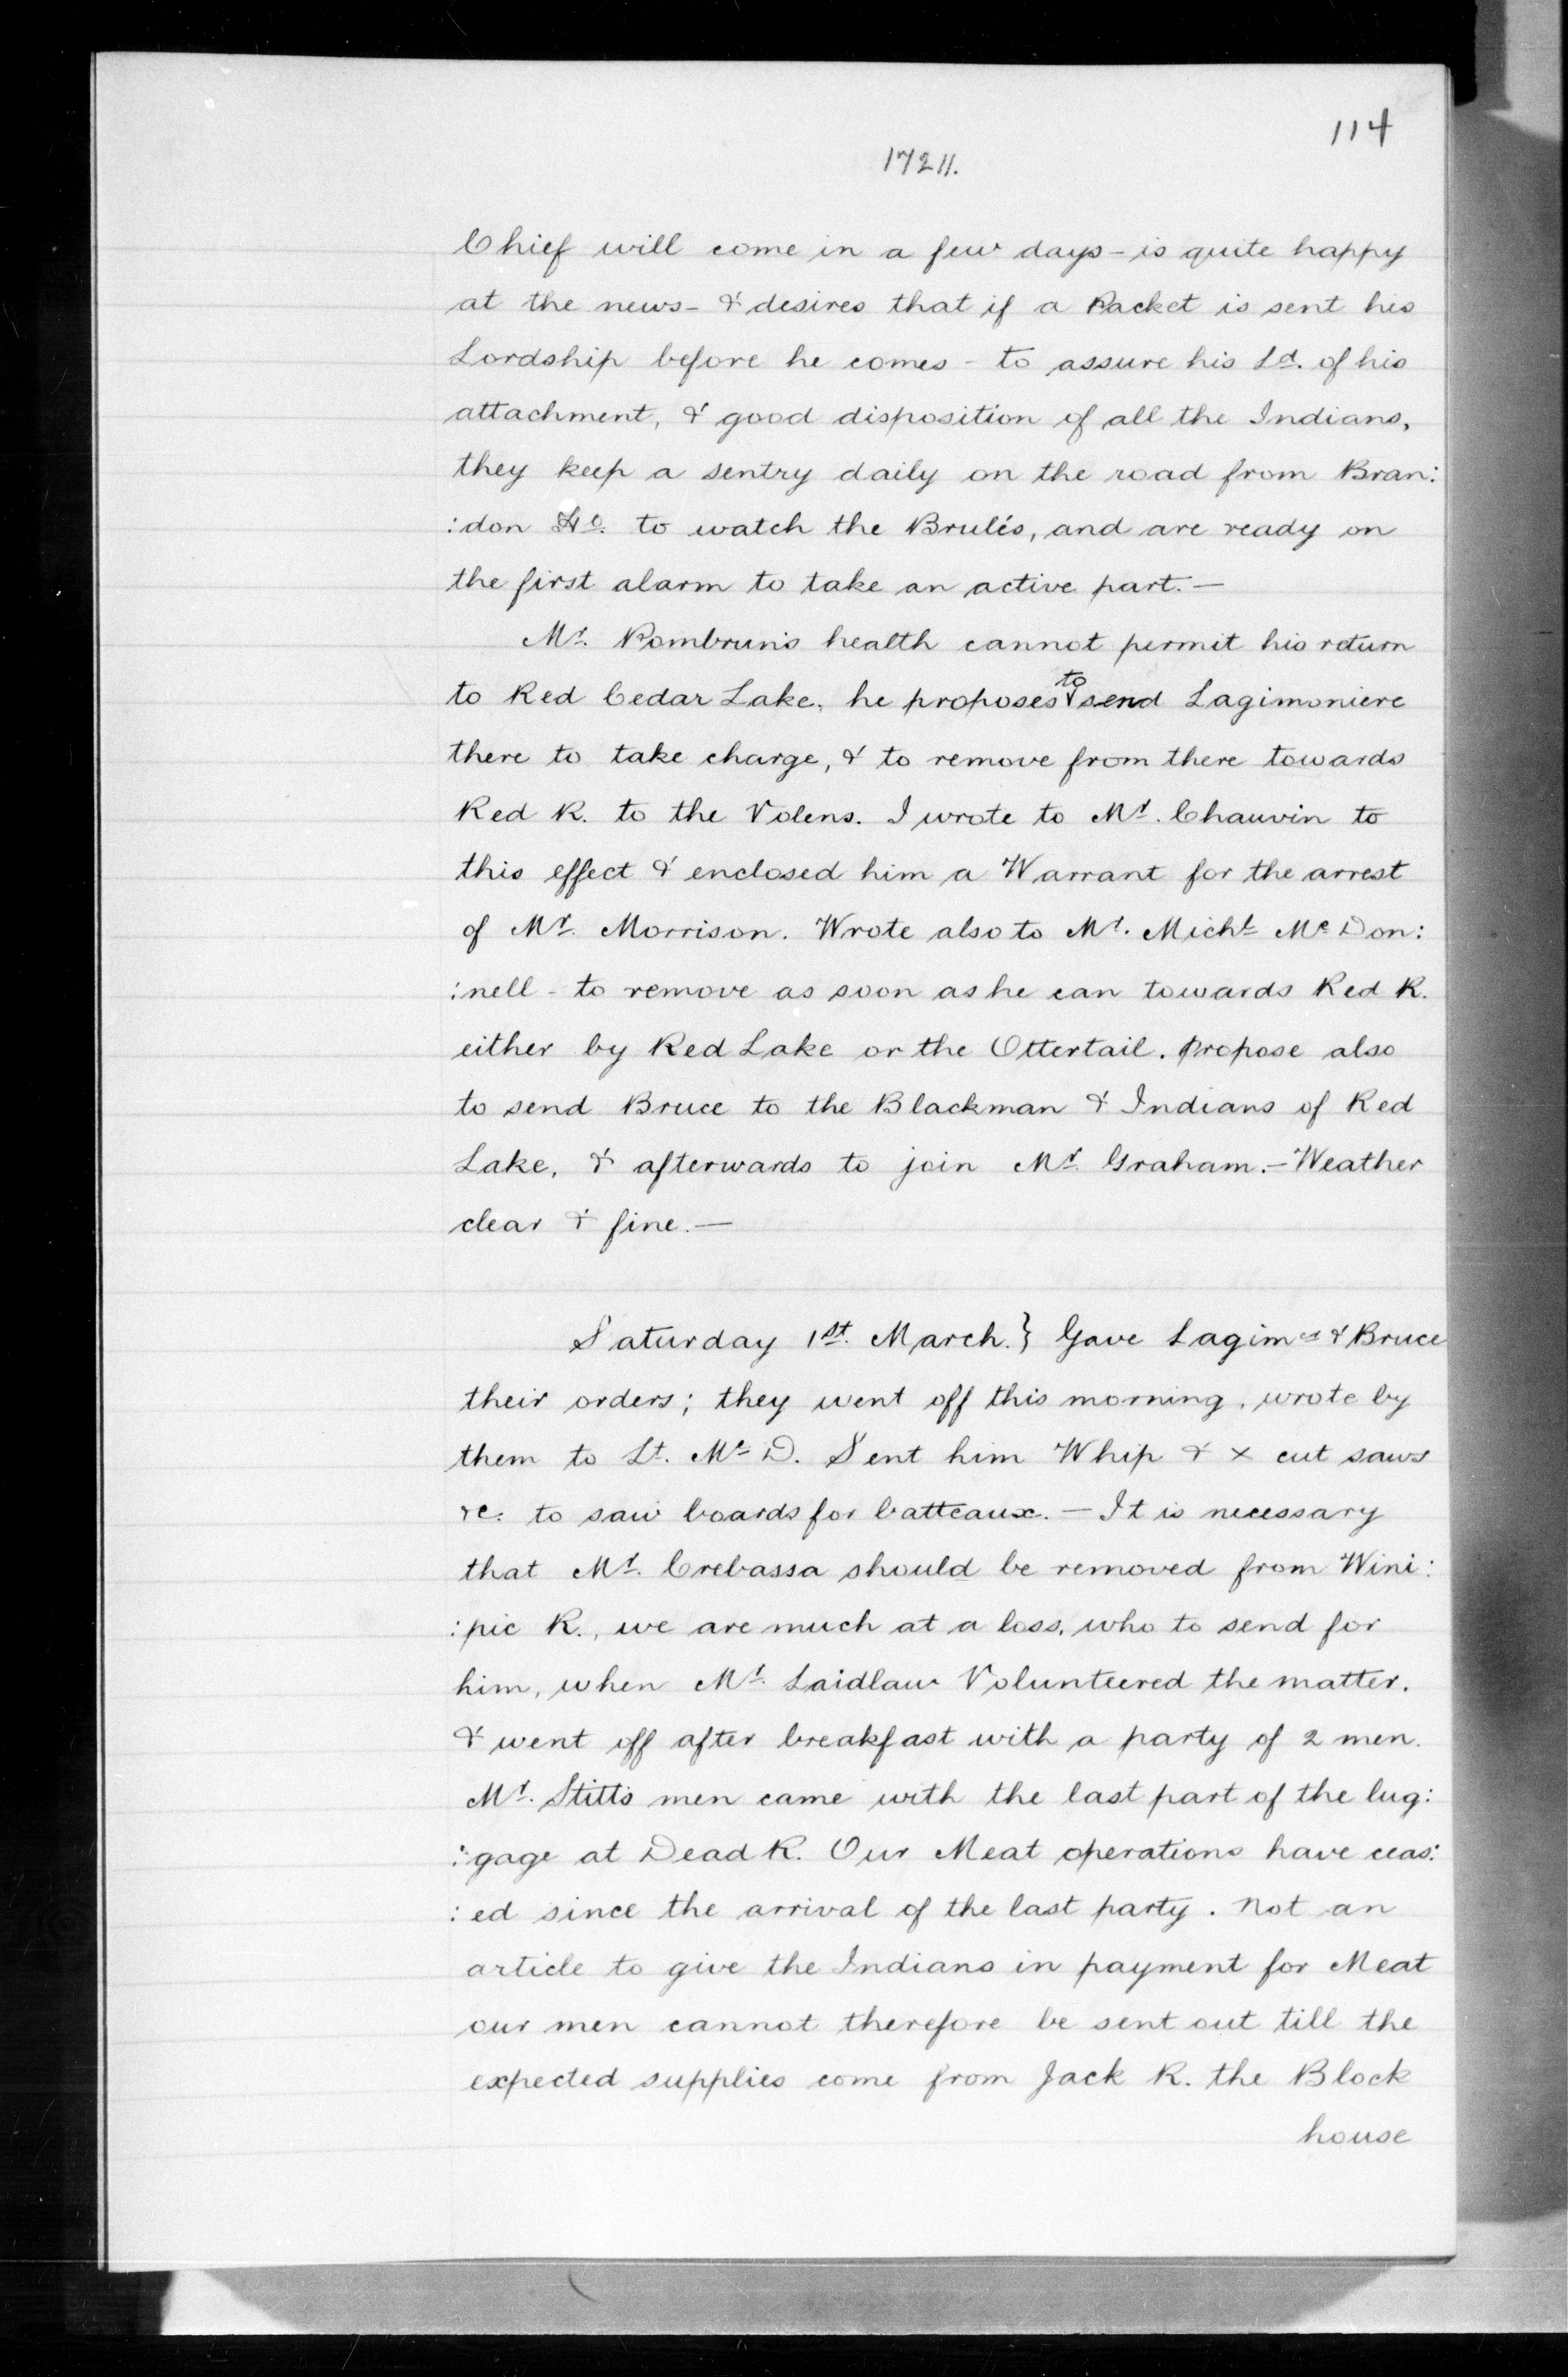 114
17211.
Chief will come in a few days - is quite happy
at the news - & desires that if a Packet is sent his
Lordship before he comes - to assure his Ld. of his
attachment, & good disposition of all the Indians,
they keep a sentry daily on the road from Bran:
:don Ho. to watch the Brulés, and are ready on
the first alarm to take an active part. —
Mr. Pombrun's health cannot permit his return
to Red Cedar Lake, he proposes to send Lagimoniere
there to take charge, & to remove from there towards
Red R. to the Volens. I wrote to Mr. Chauvin to
this effect & enclosed him a Warrant for the arrest
of Mr. Morrison. Wrote also to Mr. Michl Mc Don:
:nell - to remove as soon as he can towards Red R.
either by Red Lake or the Ottertail. Propose also
to send Bruce to the Blackman & Indians of Red
Lake, & afterwards to join Mr. Graham. — Weather
clear & fine. —
Saturday 1st. March.} Gave Lagimre & Bruce
their orders; they went off this morning, wrote by
them to Lt. Mc D. Sent him Whip & x cut saws
&c. to saw boards for batteaux. — It is necessary
that Mr. Crebassa should be removed from Wini:
:pic R., we are much at a loss, who to send for
him, when Mr. Laidlaw Volunteered the matter.
& went off after breakfast with a party of 2 men.
Mr. Stitt's men came with the last part of the lug:
:gage at Dead R. Our Meat operations have ceas:
:ed since the arrival of the last party. Not an
article to give the Indians in payment for Meat
our men cannot therefore be sent out till the
expected supplies come from Jack R. the Block
house